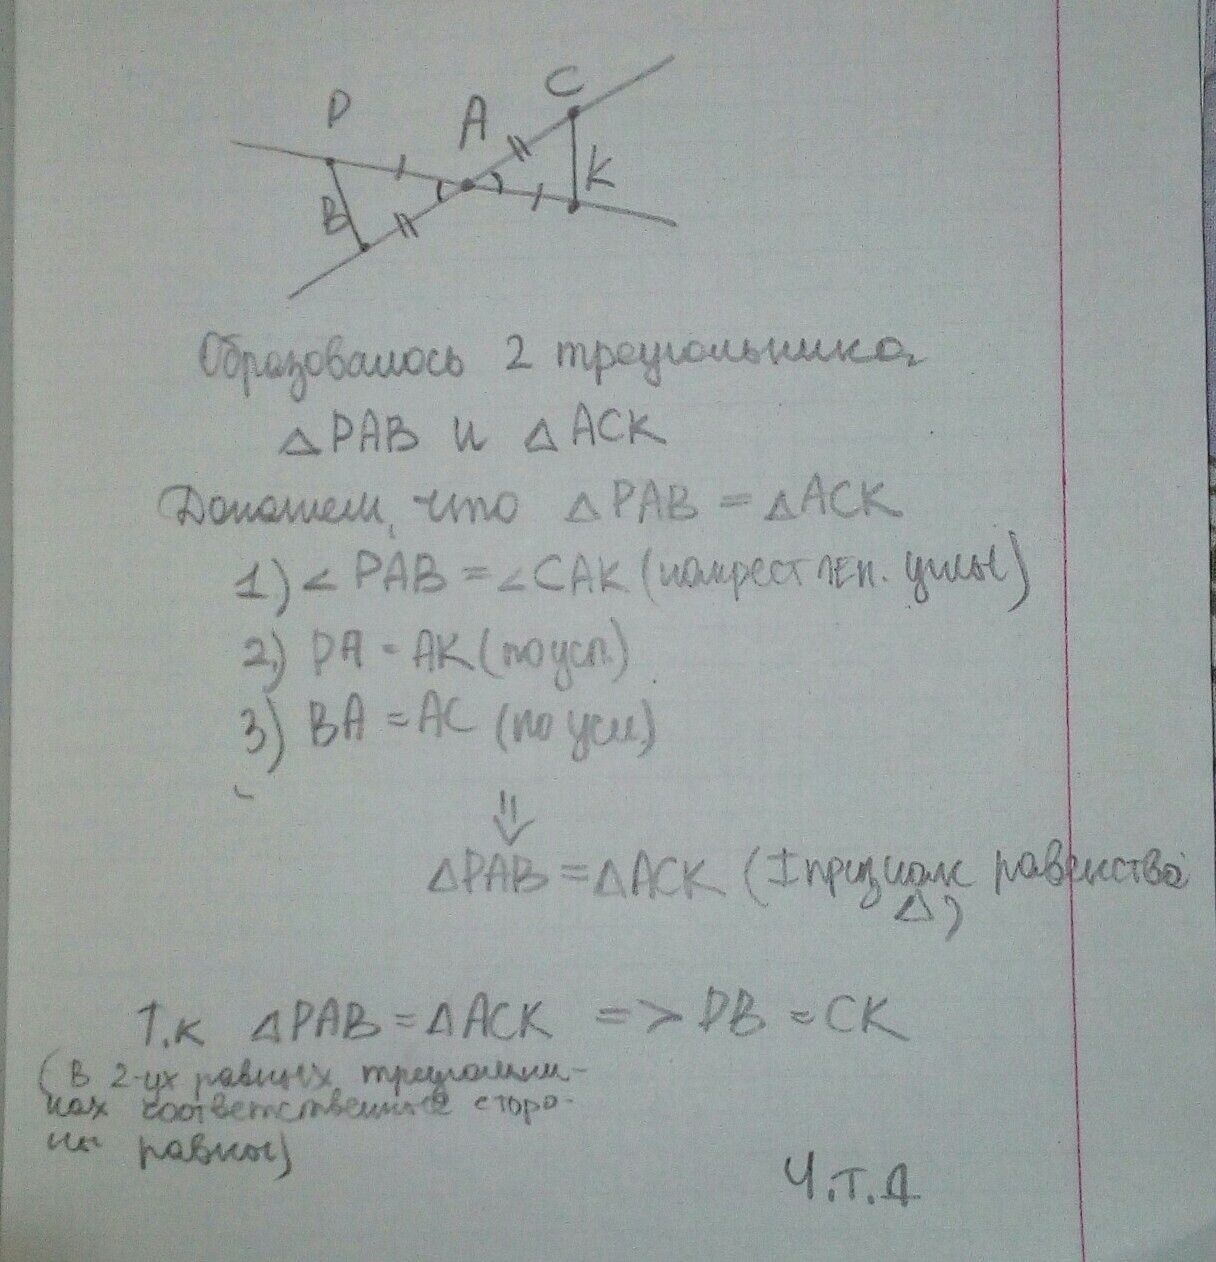 P
A
C
B
K
Образовалось 2 треугольника
△PAB и △ACK
Докажем, что △PAB = △ACK
1) ∠PAB = ∠CAK (накрест леж. углы)
2) PA = AK (по усл.)
3) BA = AC (по усл.)
⇓
△PAB = △ACK (I признак равенства
△)
Т.к △PAB = △ACK => PB = CK
(В 2-ух равных треугольни-
ках соответственные сторо-
ны равны)
Ч.т.д